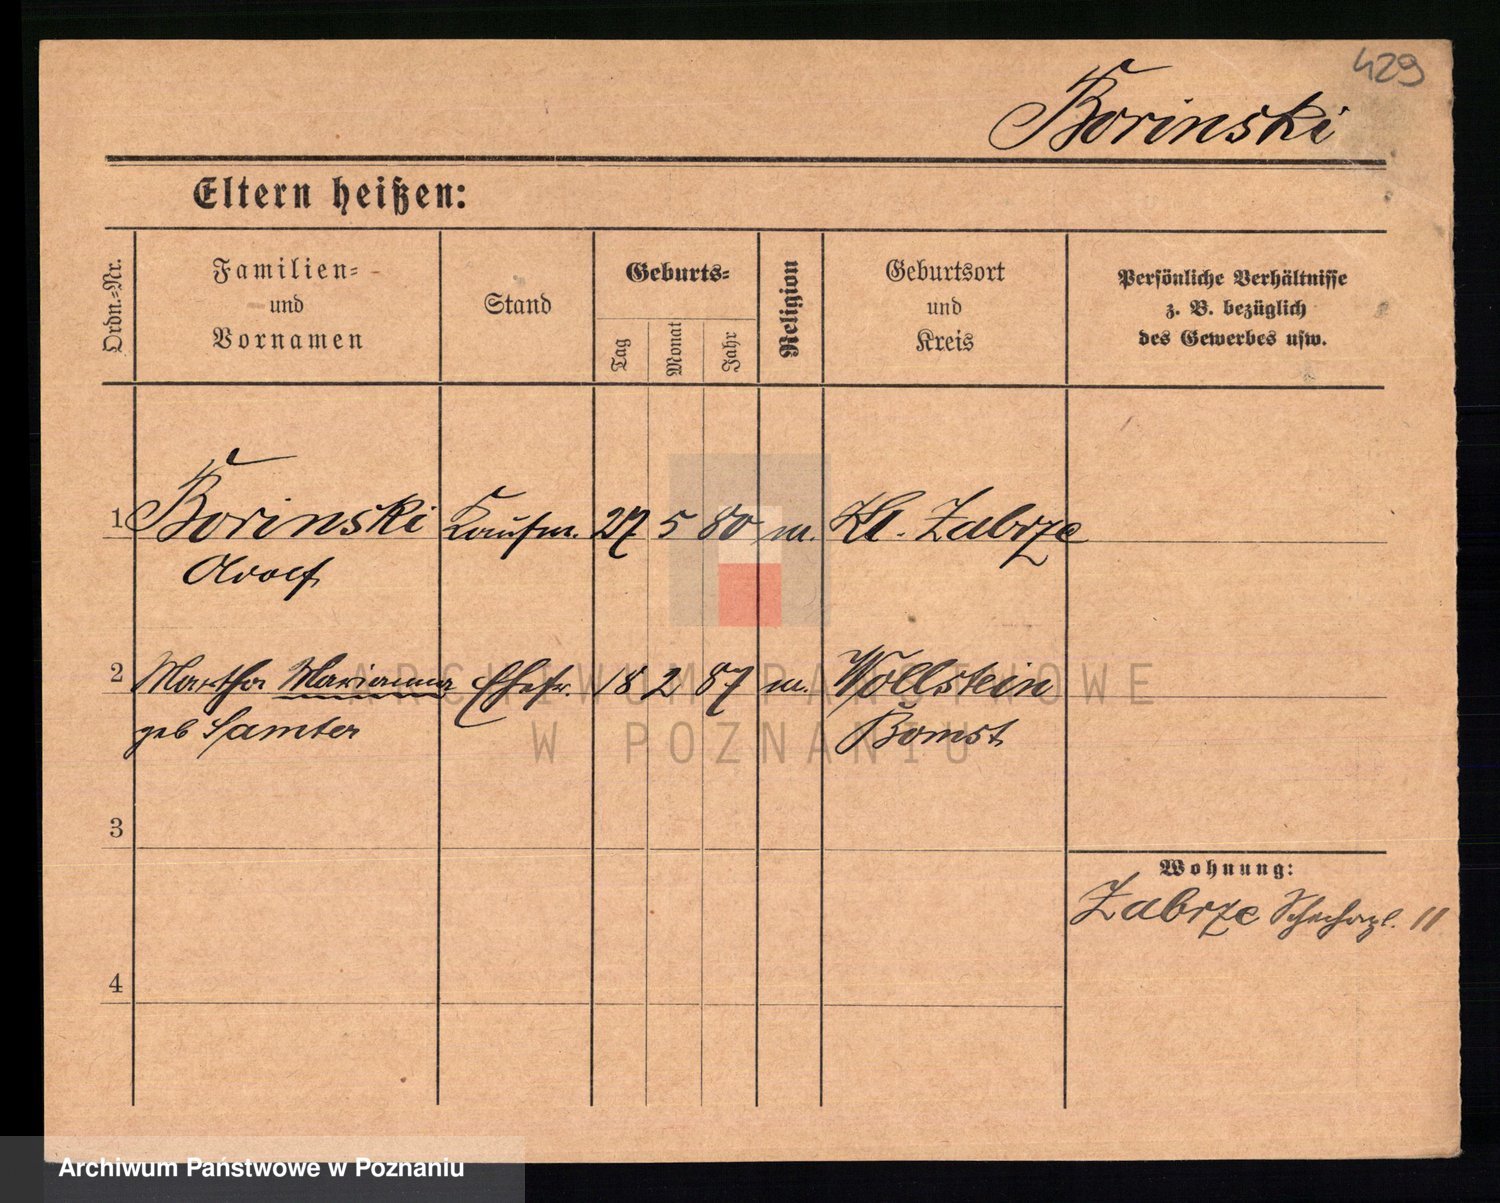 429
Borinski
Eltern heißen:
Ordn.-Nr.
Familien-
und
Vornamen
Stand
Geburts-
Tag
Monat
Jahr
Religion
Geburtsort
und
Kreis
Persönliche Verhältnisse
z. B. bezüglich
des Gewerbes usw.
1 Borinski Kaufm. 27 5 80 m. Kl. Zabrze
Adolf
2 Martha Marianna Ehefr. 18 2 87 m. Wollstein
geb Samter Bomst
3
Wohnung:
Zabrze 11
4
ARCHIWUM PAŃSTWOWE
W POZNANIU
Archiwum Państwowe w Poznaniu